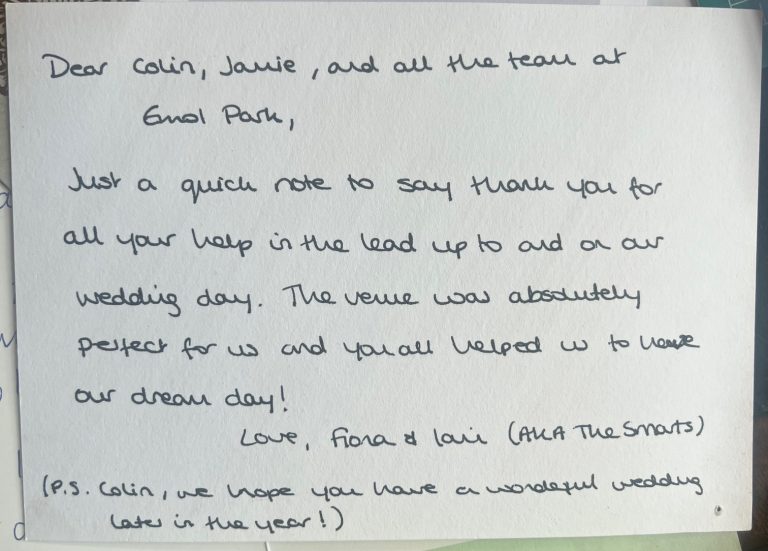 Dear Colin, Jamie, and all the team at
Errol Park,
Just a quick note to say thank you for
all your help in the lead up to and on our
wedding day. The venue was absolutely
perfect for us and you all helped us to have
our dream day!
Love, Fiona & Iain (AKA The Smarts)
(P.S. Colin, we hope you have a wonderful wedding
later in the year!)